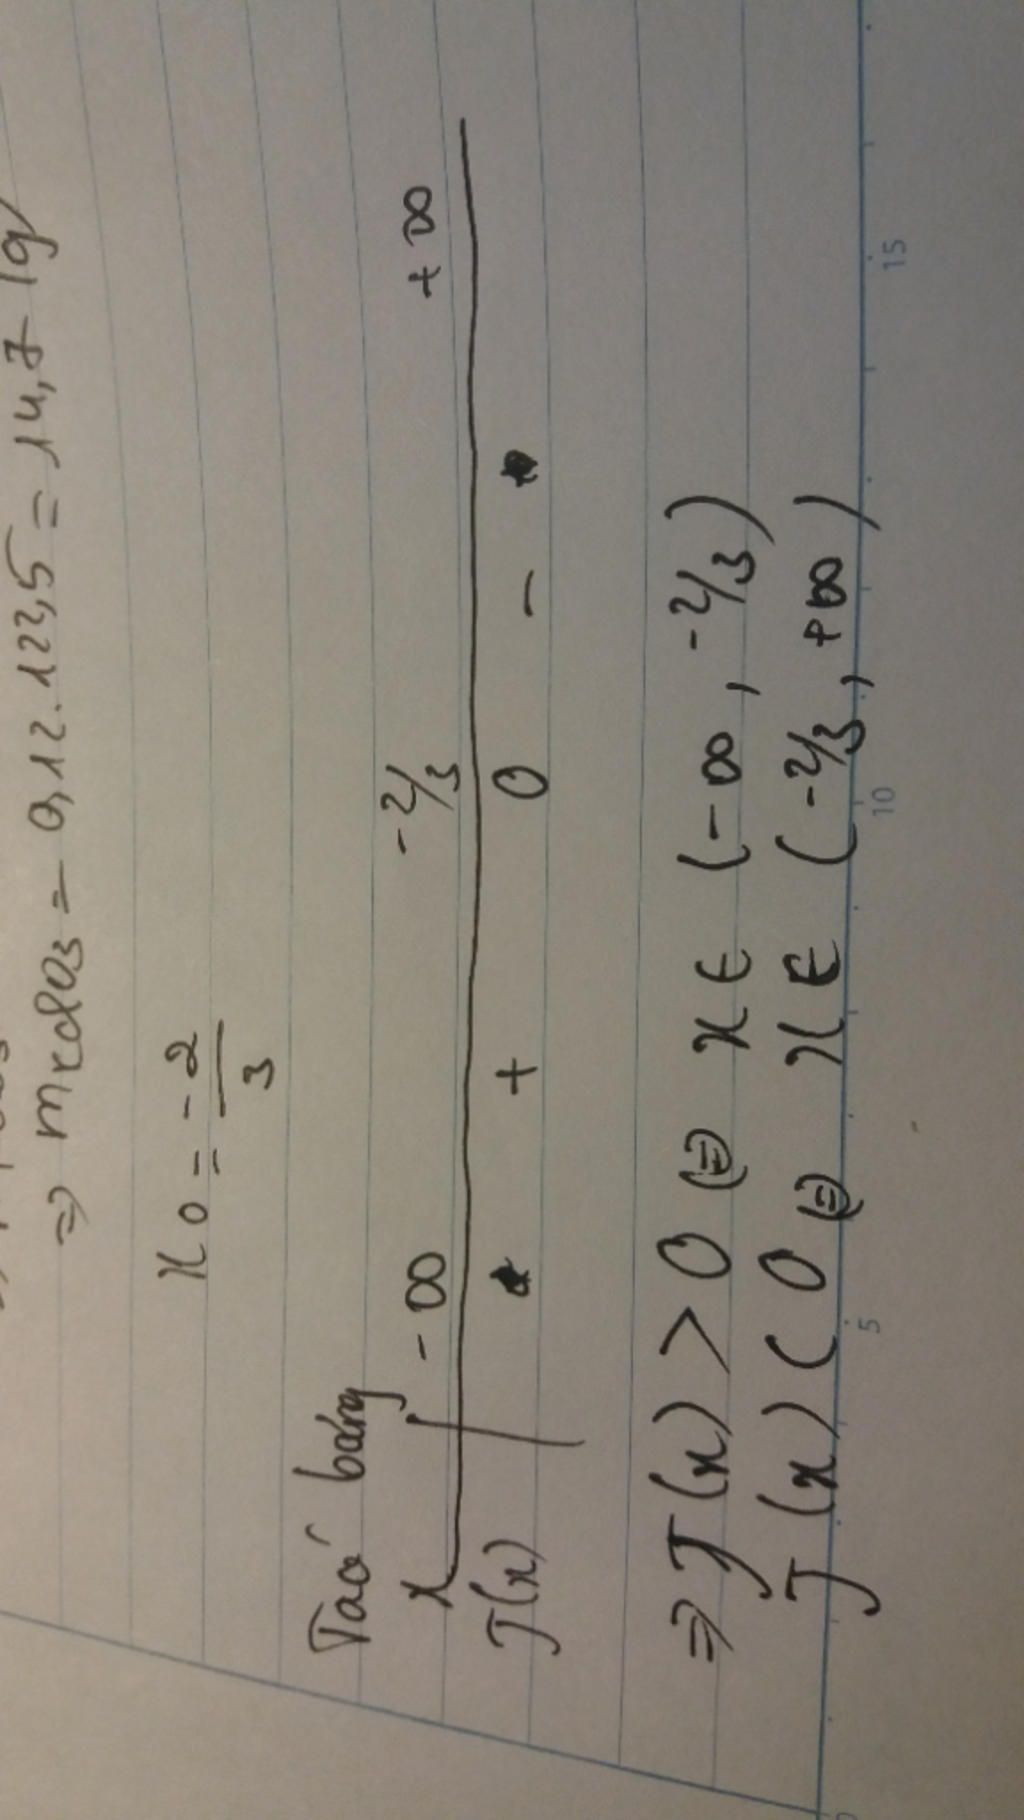 ⇒ mKClO3 = 0,12.122,5 = 14,7 (g)
x0 = -2/3
Taó bảng
x -∞ -2/3 +∞
f(x) + 0 -
⇒ f(x) > 0 ⇔ x ∈ (-∞, -2/3)
f(x) < 0 ⇔ x ∈ (-2/3, +∞)
5 10 15